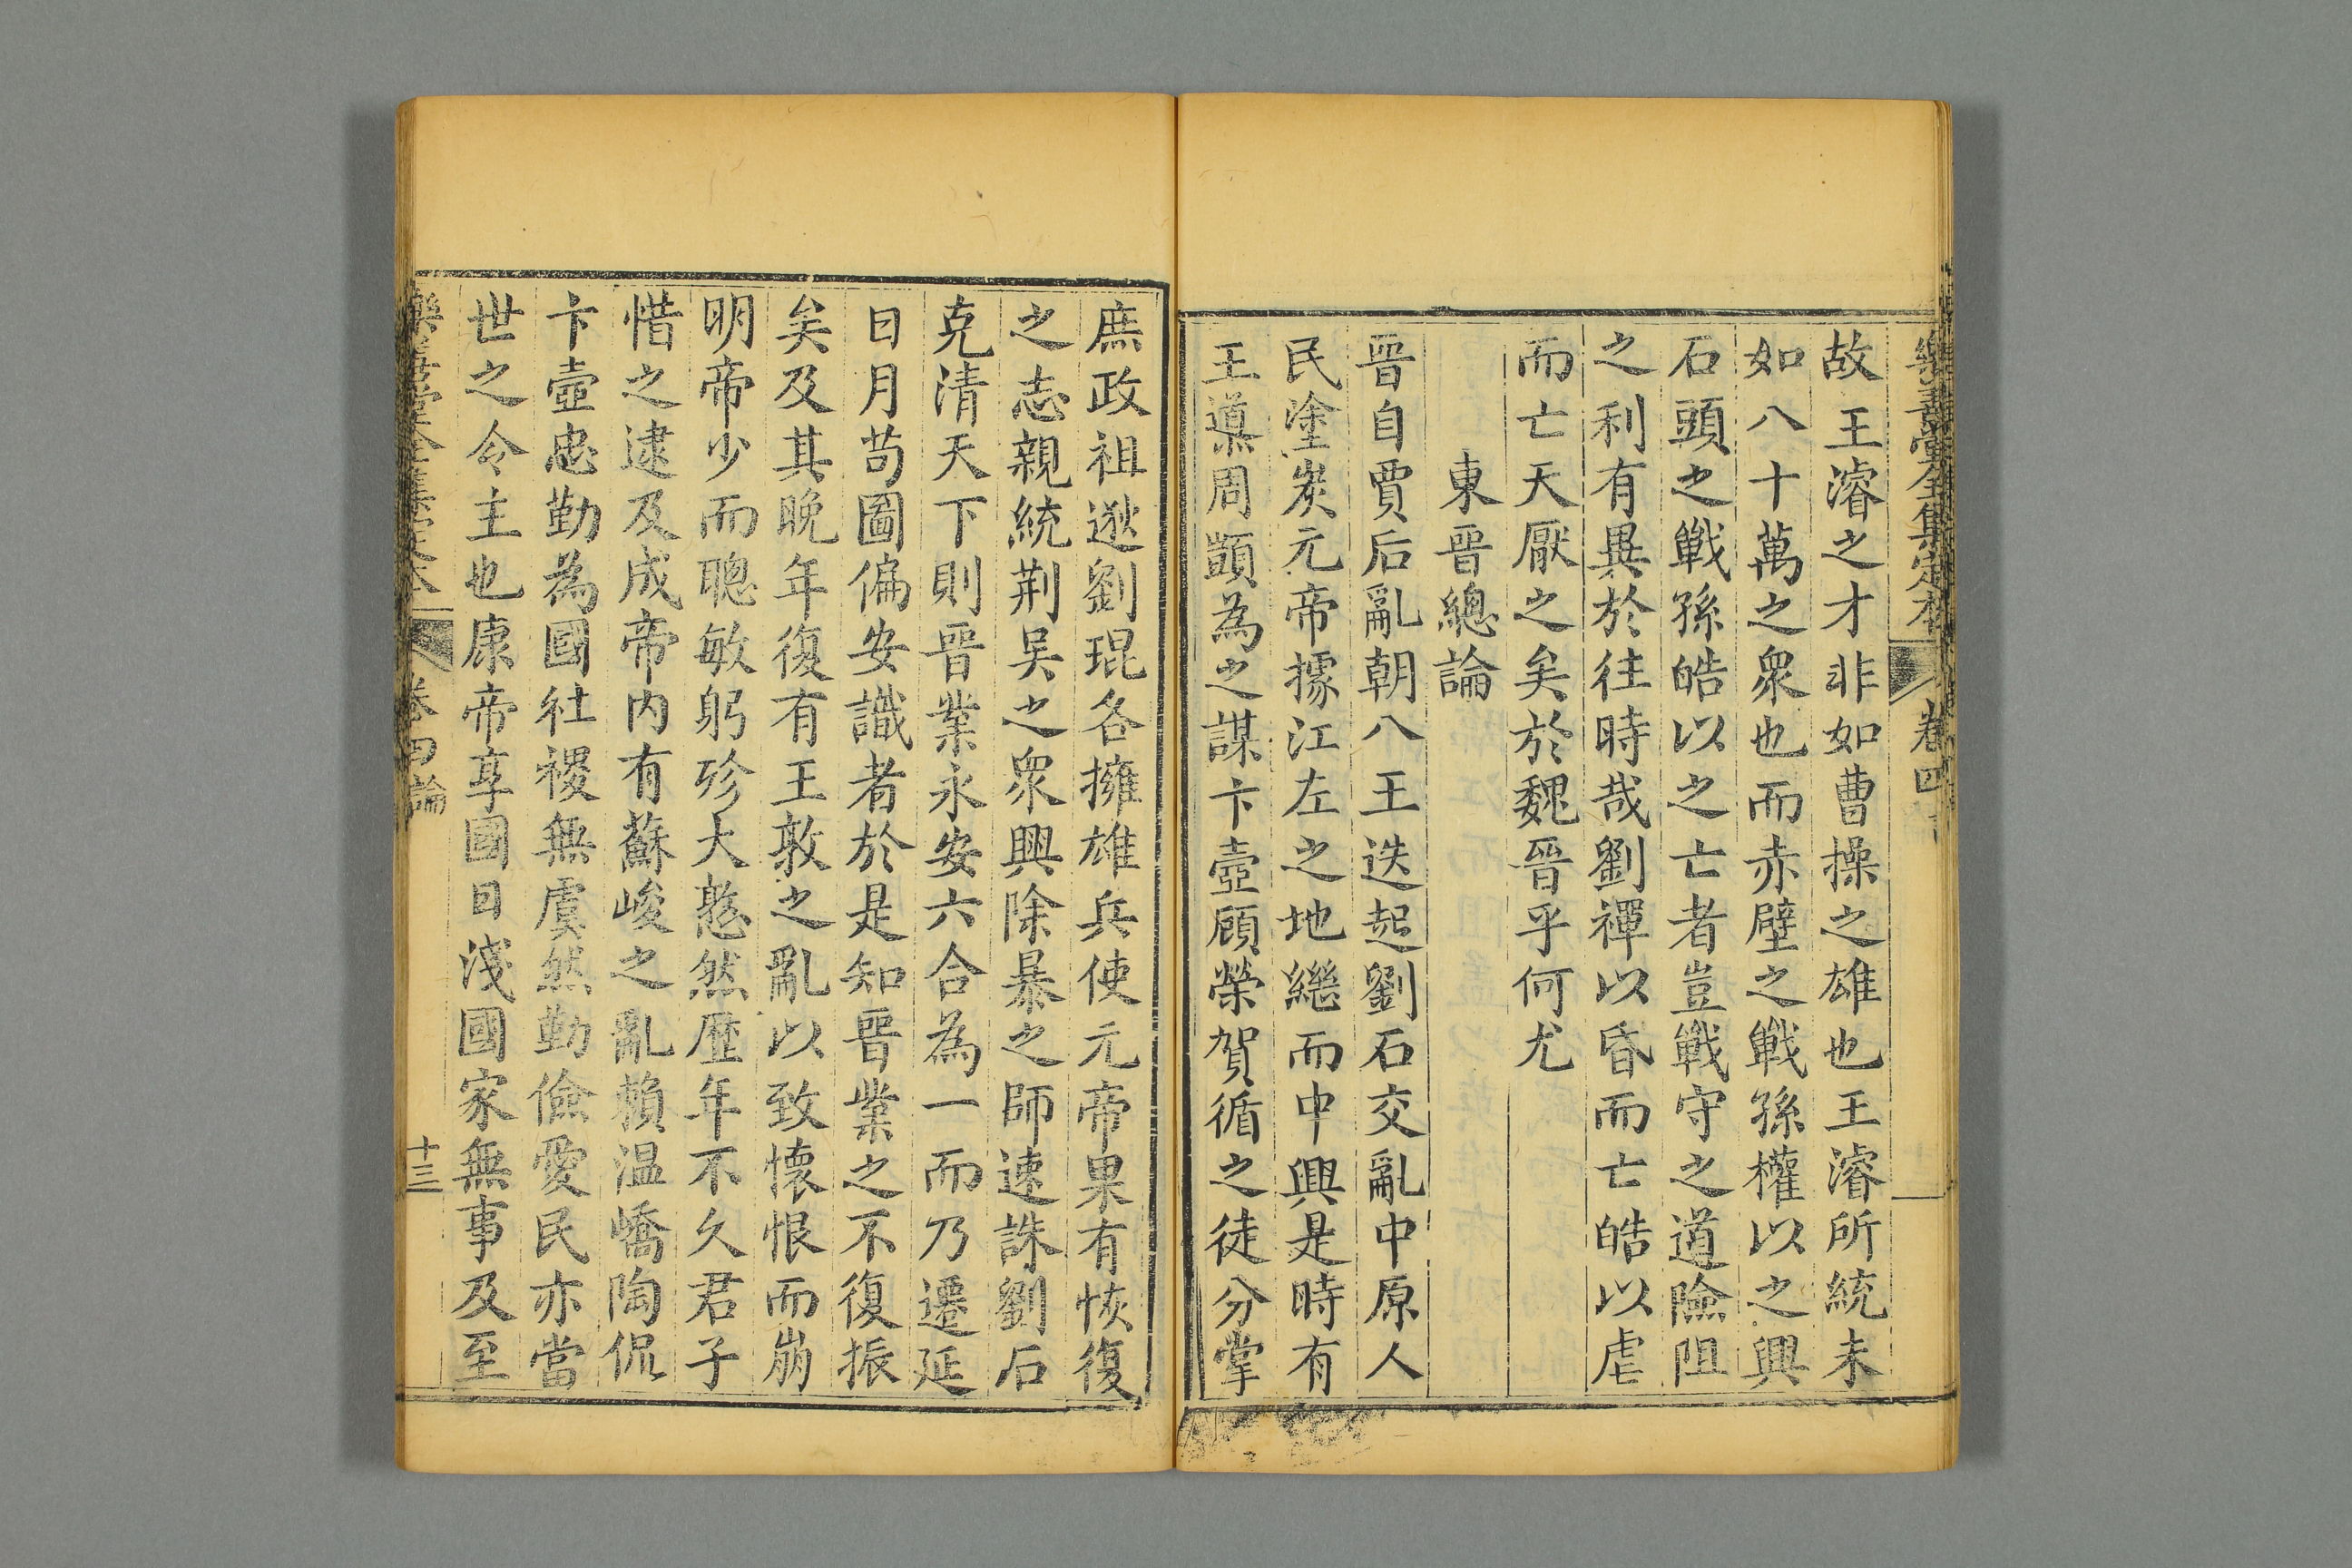 樂善堂全集定本 卷四
故王濬之才非如曹操之雄也王濬所統未
如八十萬之衆也而赤壁之戰孫權以之興
石頭之戰孫皓以之亡者豈戰守之道險阻
之利有異於往時哉劉禪以昏而亡皓以虐
而亡天厭之矣於魏晉乎何尤
東晉總論
晉自賈后亂朝八王迭起劉石交亂中原人
民塗炭元帝據江左之地繼而中興是時有
王導周顗為之謀卞壼顧榮賀循之徒分掌
庶政祖逖劉琨各擁雄兵使元帝果有恢復
之志親統荆吴之衆興除暴之師速誅劉石
克清天下則晉業永安六合為一而乃遷延
日月苟圖偏安識者於是知晉業之不復振
矣及其晚年復有王敦之亂以致懷恨而崩
明帝少而聰敏躬殄大憝然歷年不久君子
惜之逮及成帝内有蘇峻之亂賴温嶠陶侃
卞壼忠勤為國社稷無虞然勤儉愛民亦當
世之令主也康帝享國日淺國家無事及至
樂善堂全集定本 卷四論 十三